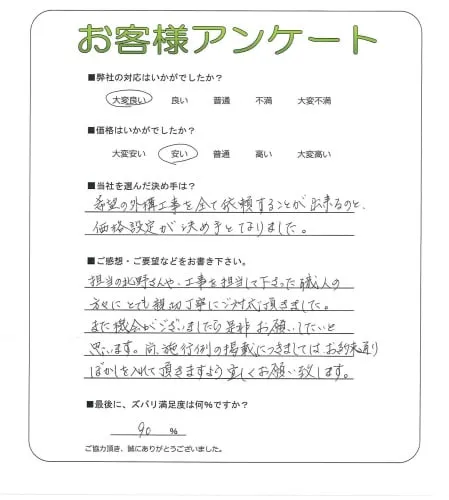 お客様アンケート
■弊社の対応はいかがでしたか？
大変良い 良い 普通 不満 大変不満
■価格はいかがでしたか？
大変安い 安い 普通 高い 大変高い
■当社を選んだ決め手は？
希望の外構工事を全て依頼することが出来るのと、
価格設定が決め手となりました。
■ご感想・ご要望などをお書き下さい。
担当の北野さんや、工事を担当して下さった職人の
方々にとても親切丁寧にご対応頂きました。
また機会がございましたら是非お願いしたいと
思います。尚、施行例の掲載につきましてはお約束通り
ぼかしを入れて頂きますよう宜しくお願い致します。
■最後に、ズバリ満足度は何%ですか？
90 %
ご協力頂き、誠にありがとうございました。